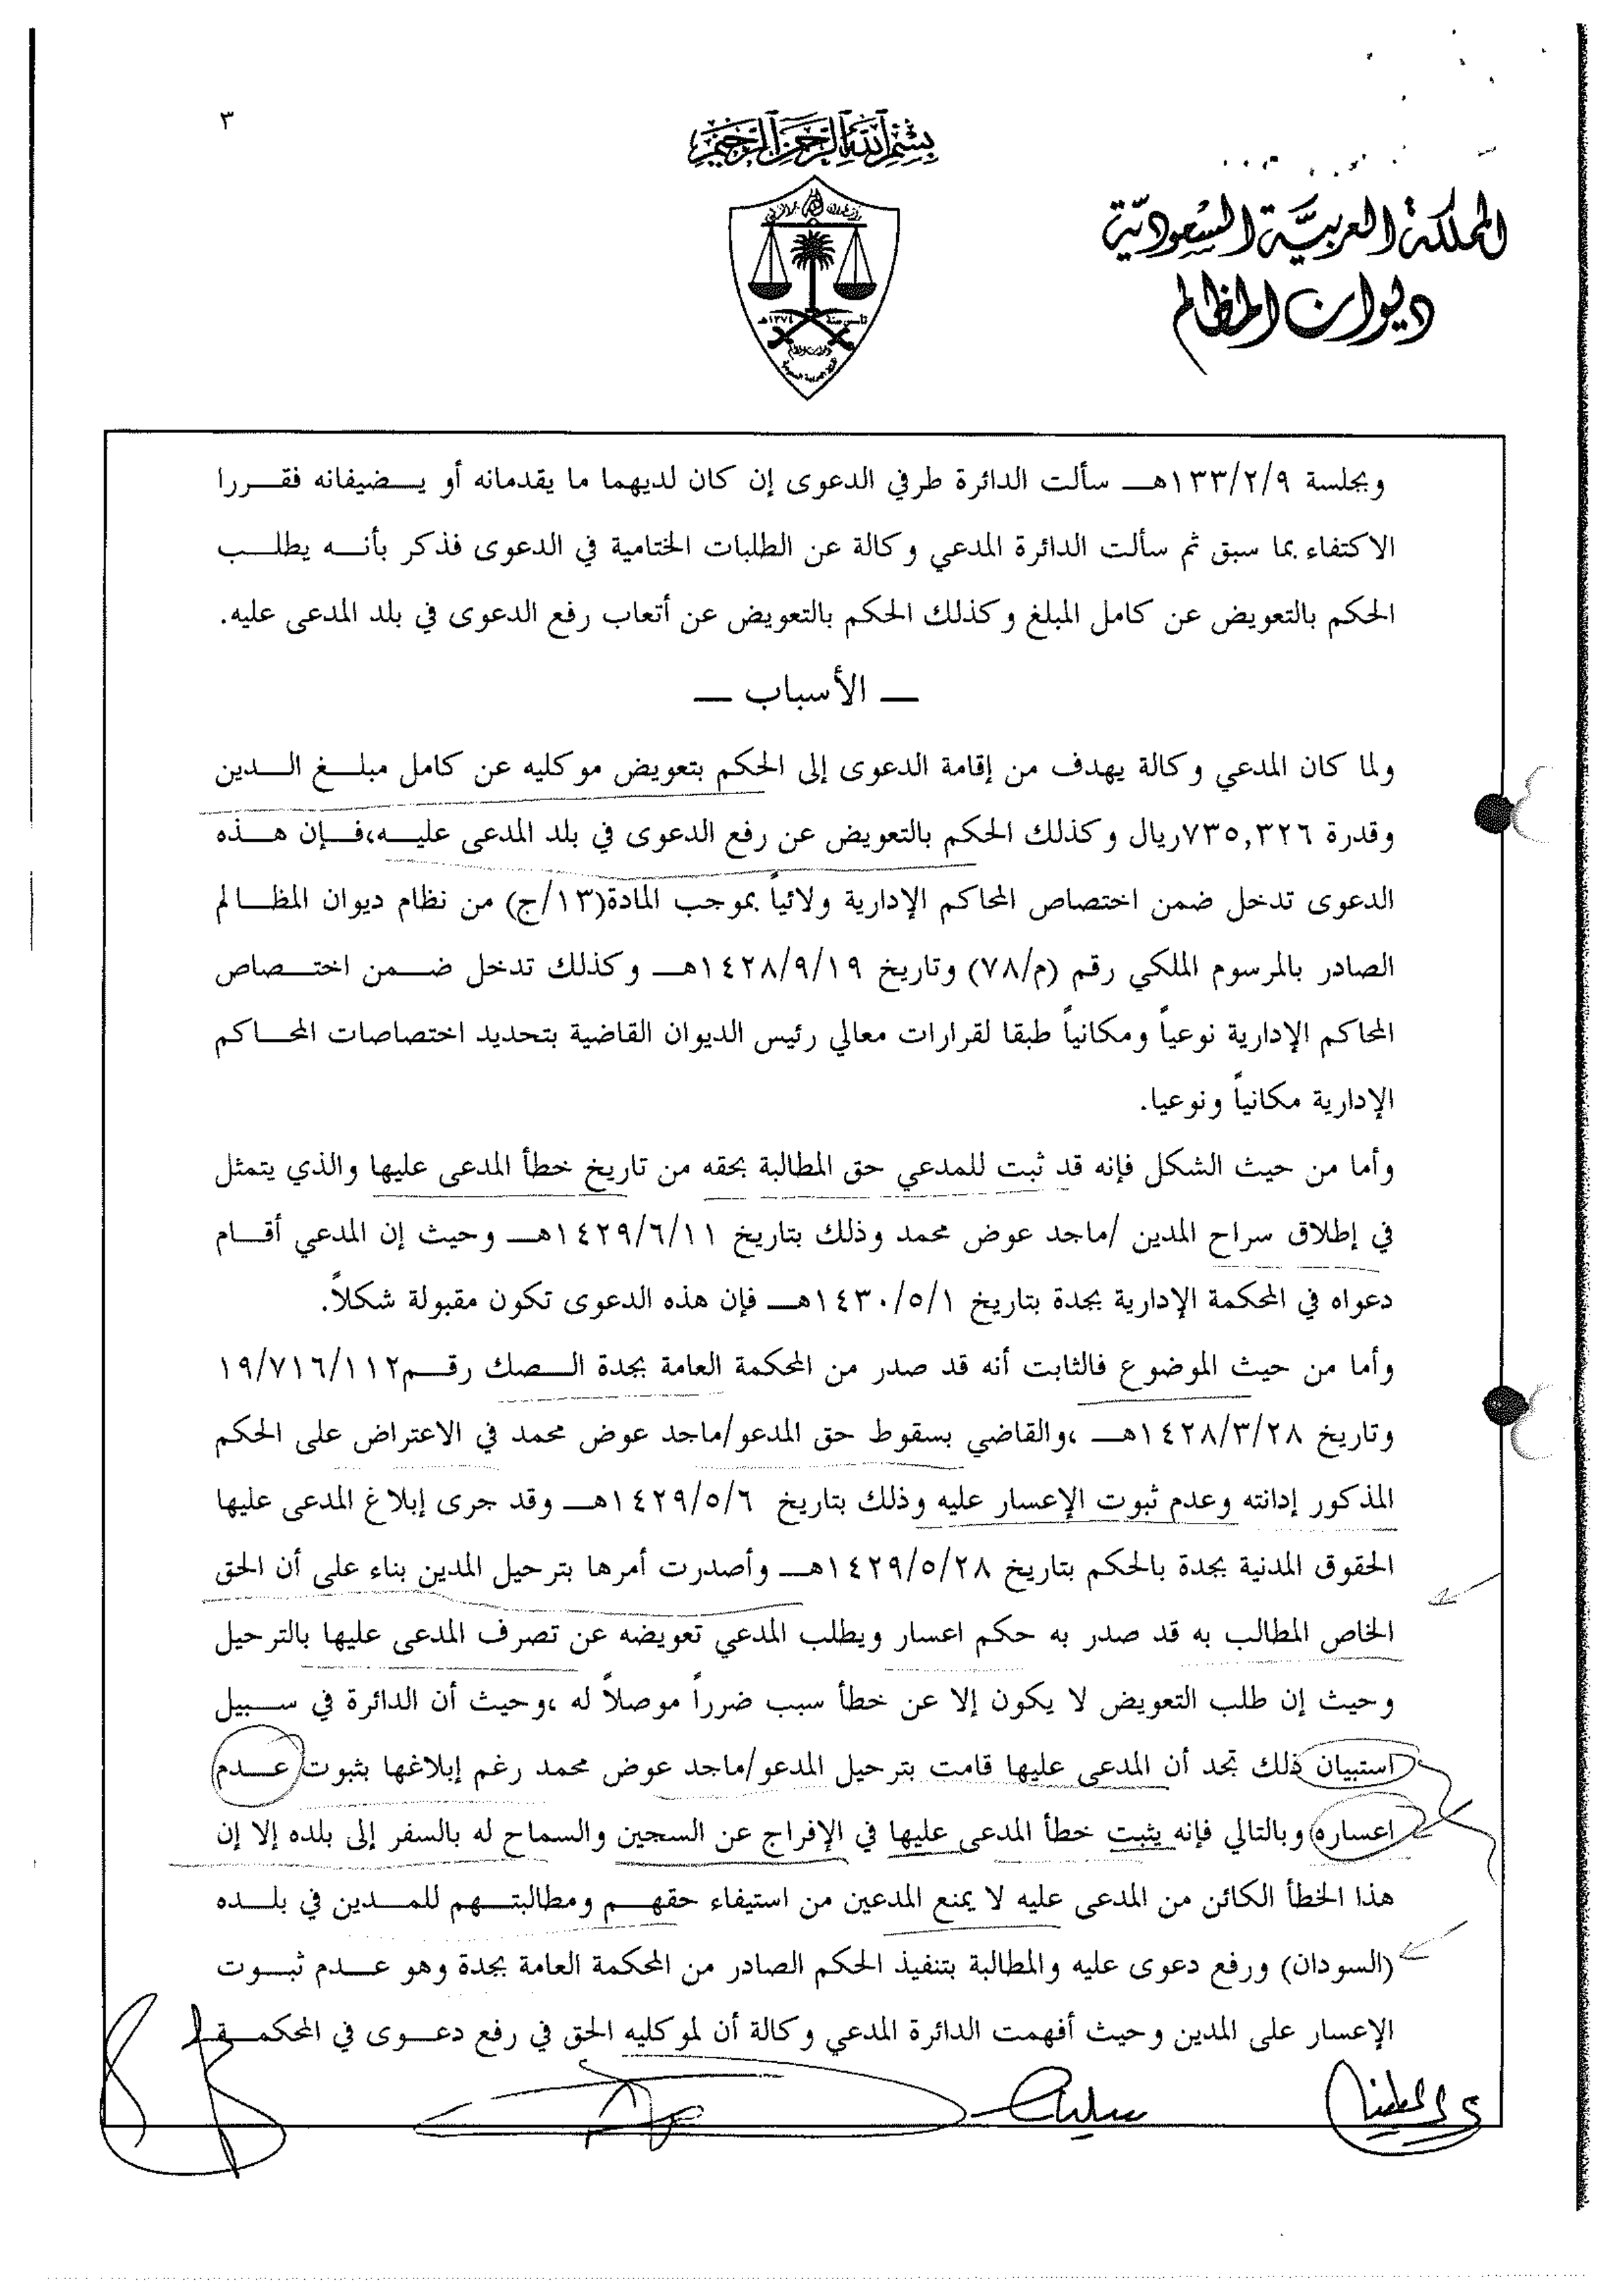 ٣
بسم الله الرحمن الرحيم
المملكة العربية السعودية
ديوان المظالم
تأسس سنة ١٣٧٤هـ
وبجلسة ١٣٣/٢/٩هـ سألت الدائرة طرفي الدعوى إن كان لديهما ما يقدمانه أو يضيفانه فقررا
الاكتفاء بما سبق ثم سألت الدائرة المدعي وكالة عن الطلبات الختامية في الدعوى فذكر بأنه يطلب
الحكم بالتعويض عن كامل المبلغ وكذلك الحكم بالتعويض عن أتعاب رفع الدعوى في بلد المدعى عليه.
ــ الأسباب ــ
ولما كان المدعي وكالة يهدف من إقامة الدعوى إلى الحكم بتعويض موكليه عن كامل مبلغ الدين
وقدرة ٧٣٥,٣٢٦ريال وكذلك الحكم بالتعويض عن رفع الدعوى في بلد المدعى عليه،فإن هذه
الدعوى تدخل ضمن اختصاص المحاكم الإدارية ولائياً بموجب المادة(١٣/ج) من نظام ديوان المظالم
الصادر بالمرسوم الملكي رقم (م/٧٨) وتاريخ ١٤٢٨/٩/١٩هـ وكذلك تدخل ضمن اختصاص
المحاكم الإدارية نوعياً ومكانياً طبقا لقرارات معالي رئيس الديوان القاضية بتحديد اختصاصات المحاكم
الإدارية مكانياً ونوعيا.
وأما من حيث الشكل فإنه قد ثبت للمدعي حق المطالبة بحقه من تاريخ خطأ المدعى عليها والذي يتمثل
في إطلاق سراح المدين /ماجد عوض محمد وذلك بتاريخ ١٤٢٩/٦/١١هـ وحيث إن المدعي أقام
دعواه في المحكمة الإدارية بجدة بتاريخ ١٤٣٠/٥/١هـ فإن هذه الدعوى تكون مقبولة شكلاً.
وأما من حيث الموضوع فالثابت أنه قد صدر من المحكمة العامة بجدة الصك رقم١٩/٧١٦/١١٢
وتاريخ ١٤٢٨/٣/٢٨هـ ،والقاضي بسقوط حق المدعو/ماجد عوض محمد في الاعتراض على الحكم
المذكور إدانته وعدم ثبوت الإعسار عليه وذلك بتاريخ ١٤٢٩/٥/٦هـ وقد جرى إبلاغ المدعى عليها
الحقوق المدنية بجدة بالحكم بتاريخ ١٤٢٩/٥/٢٨هـ وأصدرت أمرها بترحيل المدين بناء على أن الحق
الخاص المطالب به قد صدر به حكم اعسار ويطلب المدعي تعويضه عن تصرف المدعى عليها بالترحيل
وحيث إن طلب التعويض لا يكون إلا عن خطأ سبب ضرراً موصلاً له ،وحيث أن الدائرة في سبيل
استبيان ذلك تجد أن المدعى عليها قامت بترحيل المدعو/ماجد عوض محمد رغم إبلاغها بثبوت عدم
اعساره وبالتالي فإنه يثبت خطأ المدعى عليها في الإفراج عن السجين والسماح له بالسفر إلى بلده إلا إن
هذا الخطأ الكائن من المدعى عليه لا يمنع المدعين من استيفاء حقهم ومطالبتهم للمدين في بلده
(السودان) ورفع دعوى عليه والمطالبة بتنفيذ الحكم الصادر من المحكمة العامة بجدة وهو عدم ثبوت
الإعسار على المدين وحيث أفهمت الدائرة المدعي وكالة أن لموكليه الحق في رفع دعوى في المحكمة